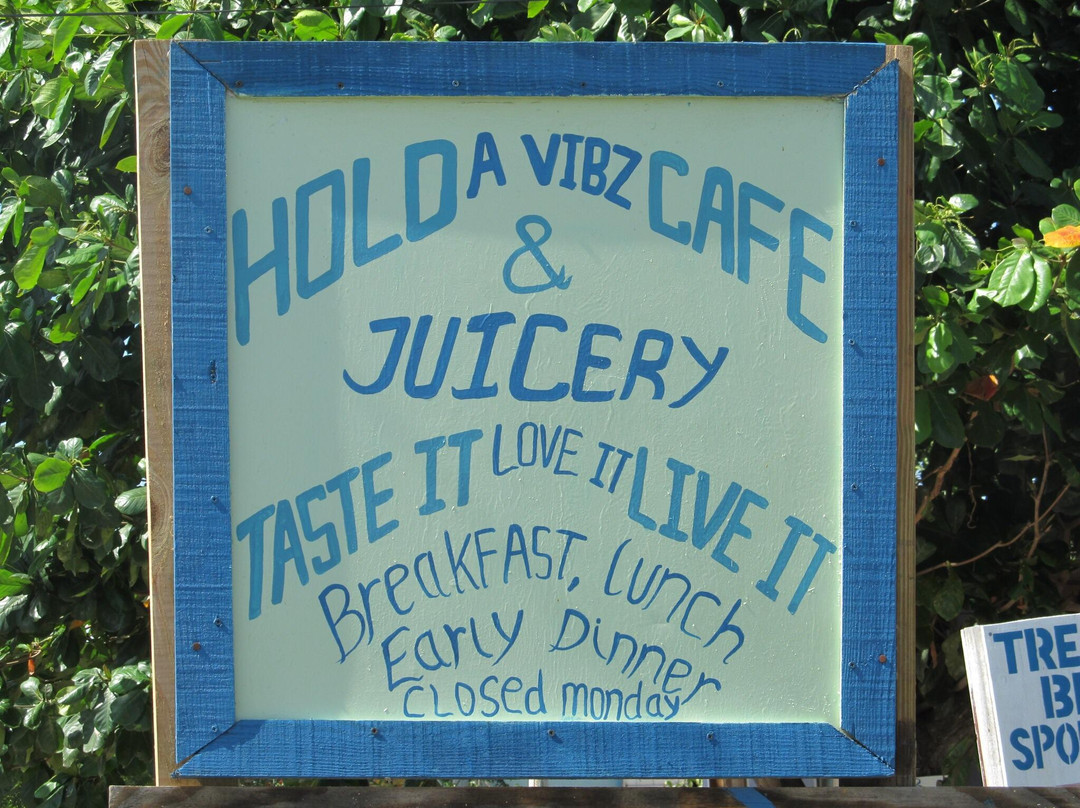 HOLD A VIBZ CAFE
&
JUICERY
TASTE IT LOVE IT LIVE IT
BreaKFAST, Lunch
Early Dinner
closed monday
TRE
SPO